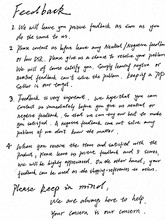 Feedback
1. We will leave you positive feedback as soon as you
do the same to us.
2. Please contact us before leaving any Neutral / Negative feedback
or low DSR. Please give us a chance to resolve your problem
We will of course satisfy you. Simply leaving negative or
neutral feedback can't solve the problem. Keep if a top
seller is our target.
3. Feedback is very important. We hope that you can
contact us immediately before you give us neutral or
negative feedback, so that we can try our best to make
you satisfied. A negative feedback can not solve any
problem if we don't know the matter.
4. When you receive the item and satisfied with the
product, please leave us positive feedback and 5 scores,
that will be highly appreciated. On the other hand, your
feedback can be used as the shipping reference to others.
Please keep in mind,
We are always here to help.
Your concern is our concern.